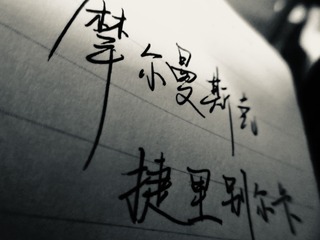 摩尔曼斯克
捷里别尔卡